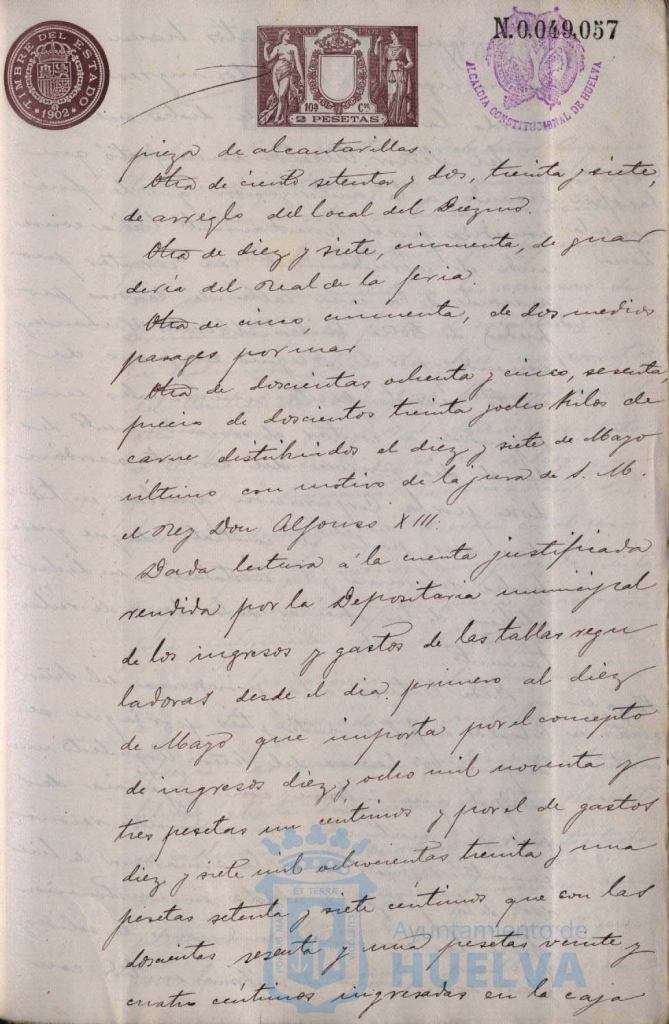 TIMBRE DEL ESTADO
*1902*
AÑO 1902
109 Cs.
2 PESETAS
N.0.049,057
ALCALDIA CONSTITUCIONAL DE HUELVA
pieza de alcantarillas.
Otra de ciento setenta y dos, treinta y siete,
de arreglo del local del Diezmo.
Otra de diez y siete, cincuenta, de guar
deria del Real de la feria.
Otra de cinco, cincuenta, de dos medios
pasages por mar
Otra de doscientas ochenta y cinco, sesenta
precio de doscientos treinta y ocho Kilos de
carne distribuidos el diez y siete de Mayo
último con motivo de la jura de S. M.
el Rey Don Alfonso XIII.
Dada lectura á la cuenta justificada
rendida por la Depositaria municipal
de los ingresos y gastos de las tablas regu
ladoras desde el dia primero al diez
de Mayo que importa por el concepto
de ingresos diez y ocho mil noventa y
tres pesetas un céntimos y por el de gastos
diez y siete mil ochocientas treinta y una
pesetas setenta y siete céntimos que con las
doscientas sesenta y una pesetas veinte y
cuatro céntimos ingresadas en la caja
Ayuntamiento de
HUELVA